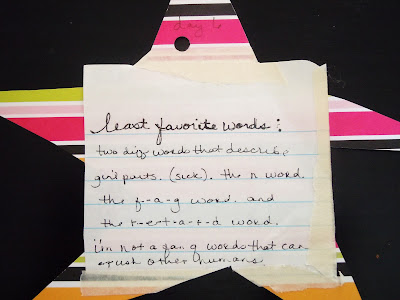 day 6
least favorite words:
two diff words that describe
girl parts. (sick). the n word.
the f--a-g word. and
the r-e-t-a-r-d word.
i'm not a fan of words that can
crush other humans